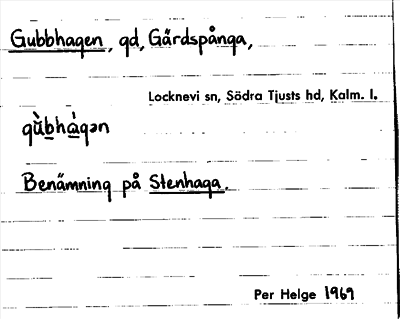 Gubbhagen, gd, Gärdspånga,
Locknevi sn, Södra Tjusts hd, Kalm. l.
gù̀bhà̀gən
Benämning på Stenhaga.
Per Helge 1969